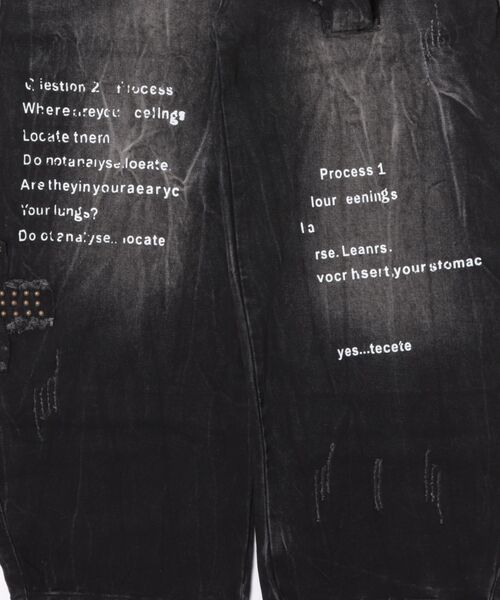 Question 2 Process
Where are you ceelings
Locate them
Do notanalyse.loeate.
Are theyinyouraearyc
Your lungs?
Do otanalyse.. locate
Process 1
lour eenings
la
rse. Leanrs.
vocr hsert,your stomac
yes...tecete